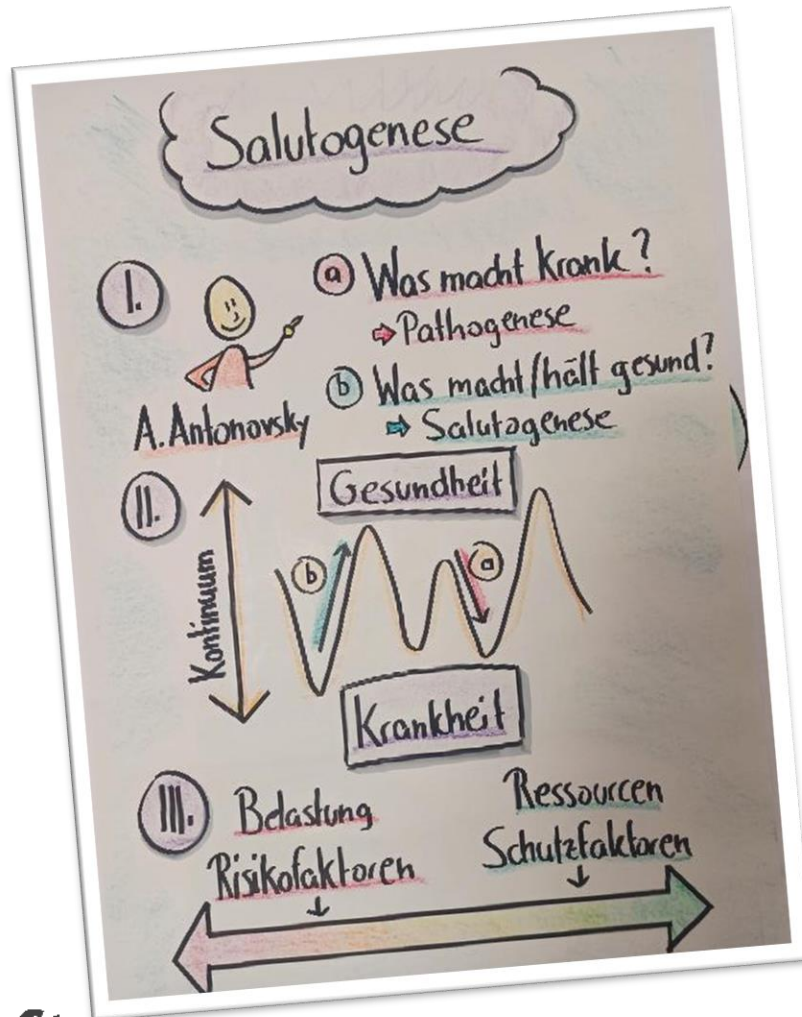 Salutogenese
I.
a Was macht krank?
⇨ Pathogenese
b Was macht/hält gesund?
⇨ Salutogenese
A. Antonovsky
II.
Kontinuum
Gesundheit
b
a
Krankheit
III.
Belastung
Risikofaktoren
Ressourcen
Schutzfaktoren